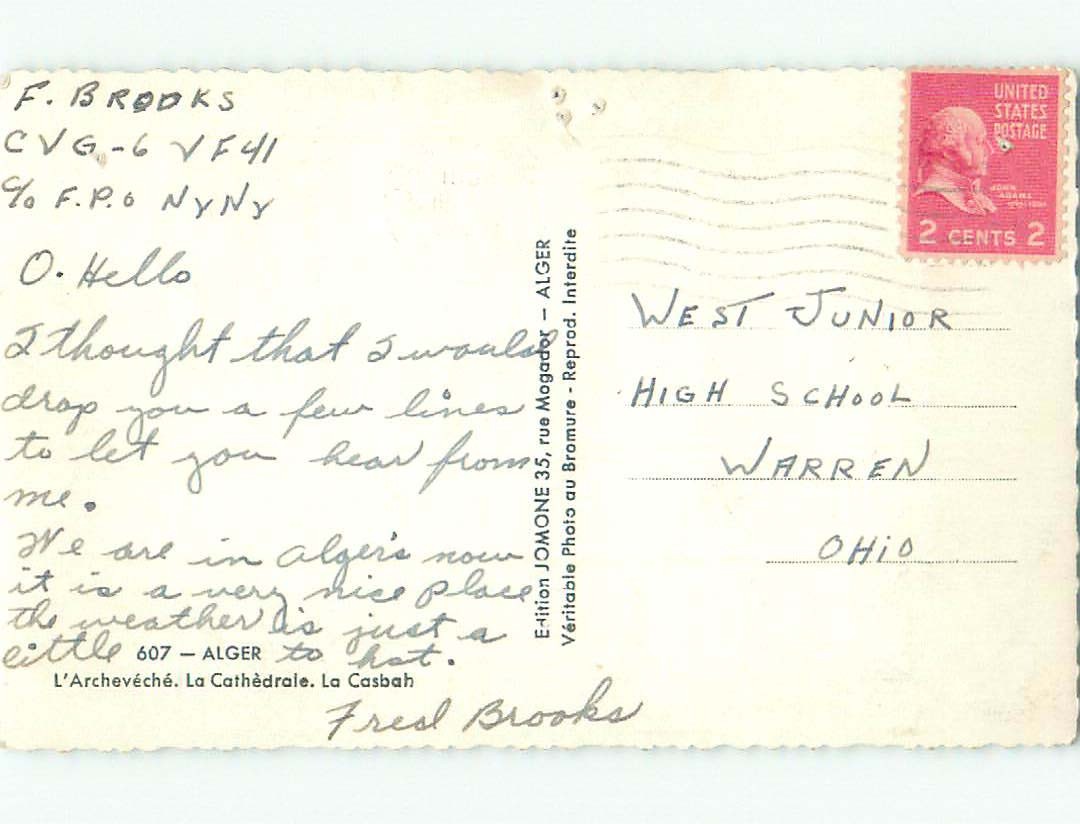 F. BROOKS
CVG-6 VF41
c/o F.P.O NYNY
O. Hello
I thought that I would
drop you a few lines
to let you hear from
me.
We are in Alger's now
it is a very nice place
the weather is just a
little to hot.
607 — ALGER
L'Archevéché. La Cathèdrale. La Casbah
Fred Brooks
Edition JOMONE 35, rue Mogador — ALGER
Véritable Photo au Bromure - Reprod. Interdite
UNITED
STATES
POSTAGE
JOHN
ADAMS
2 CENTS 2
WEST JUNIOR
HIGH SCHOOL
WARREN
OHiO